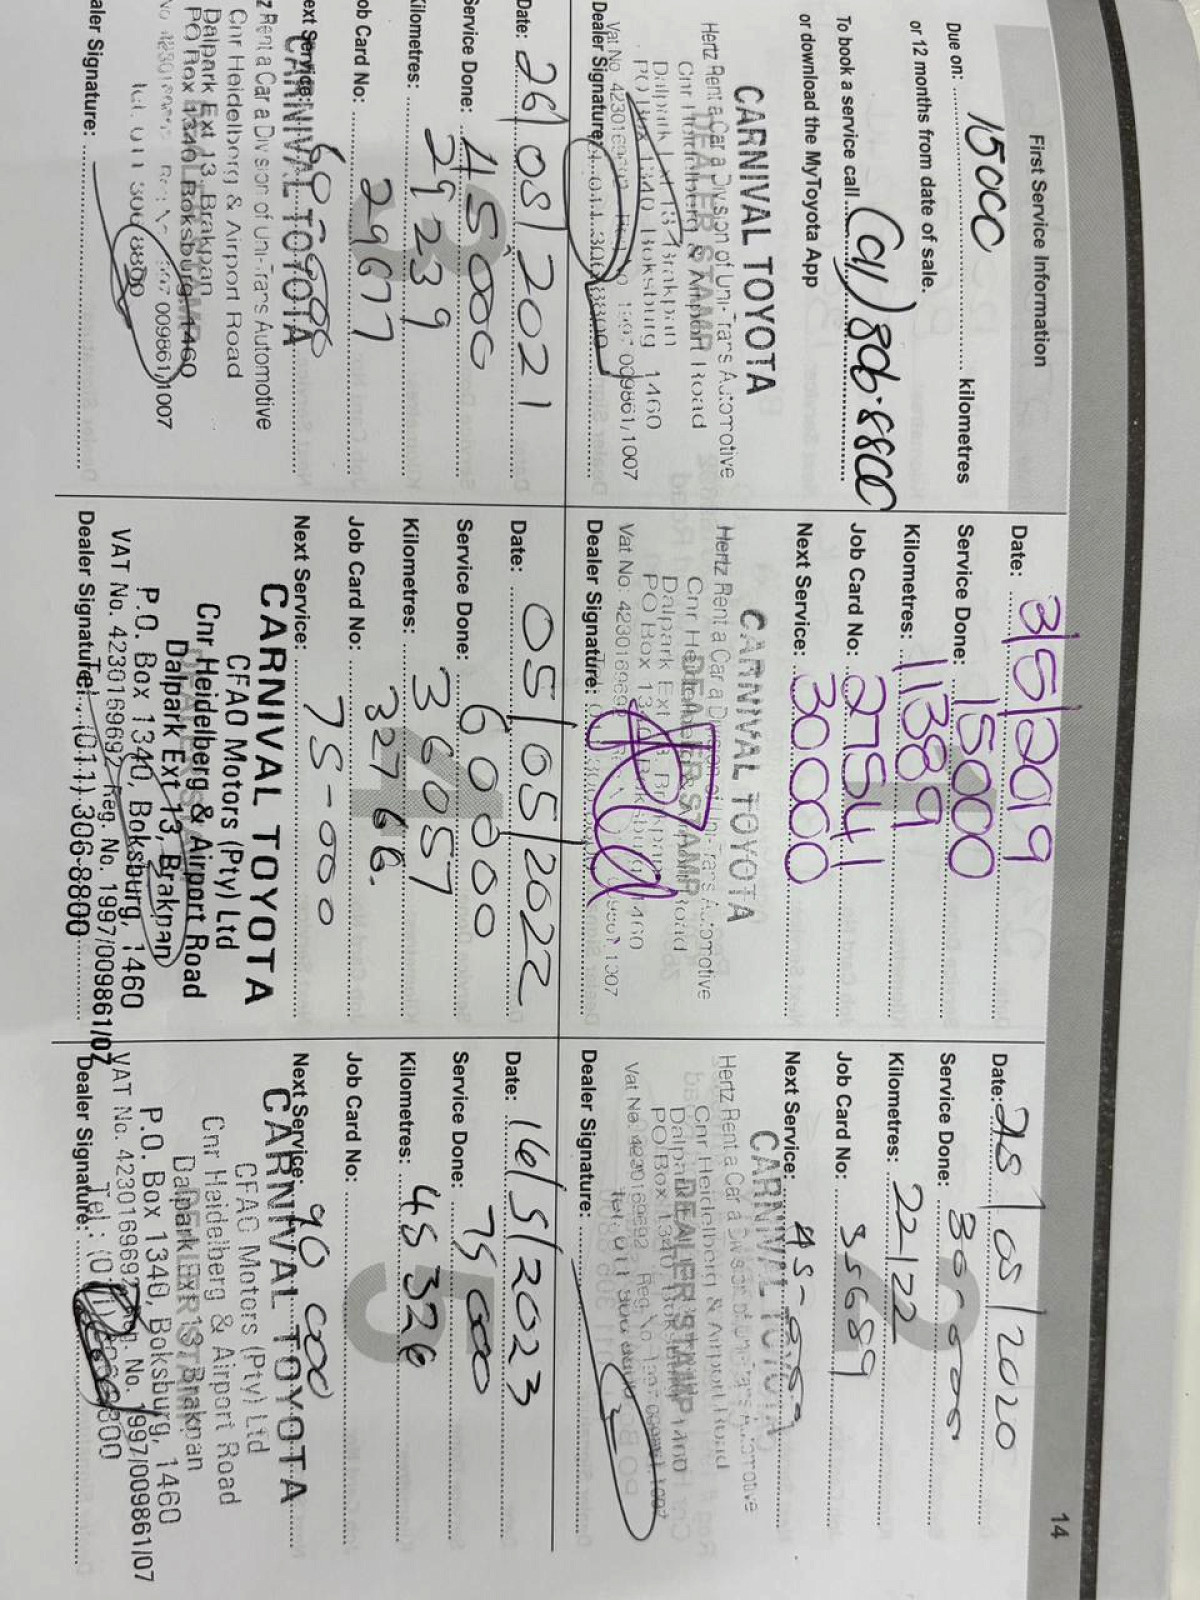 14
First Service Information
Due on: 15000 kilometres
or 12 months from date of sale.
To book a service call (011) 306-8800
or download the MyToyota App
CARNIVAL TOYOTA
Hertz Rent a Car a Division of Uni-Trans Automotive
Cnr Heidelberg & Airport Road
DEALER STAMP
Dalpark Ext 13 Brakpan
PO Box 1340 Boksburg 1460
Vat No. 4230169692 Reg No 1997 009861/1007
Dealer Signature:
Date: 3/5/2019
Service Done: 15000
Kilometres: 11389
Job Card No: 27541
Next Service: 30000
CARNIVAL TOYOTA
Hertz Rent a Car a Division of Uni-Trans Automotive
Cnr Heidelberg
DEALER STAMP
Dalpark Ext 13 Brakpan
PO Box 1340 Boksburg 1460
Vat No: 4230169692
Dealer Signature:
2
Date: 21/05/2020
Service Done: 30-000
Kilometres: 22122
Job Card No: 35689
Next Service: 45-000
CARNIVAL TOYOTA
Hertz Rent a Car a Division of Uni-Trans Automotive
Cnr Heidelberg & Airport Road
DEALER STAMP
Dalpark
PO Box 1340
Vat No. 4230169692 Reg. No
Dealer Signature:
3
Date: 26/08/2021
Service Done: 45000
Kilometres: 29239
Job Card No: 29677
Next Service: 60-000
CARNIVAL TOYOTA
z Rent a Car a Division of Uni-Trans Automotive
Cnr Heidelberg & Airport Road
Dalpark Ext 13 Brakpan
PO Box 1340 Boksburg 1460
009861/1007
Tel: 011 306 8800
ealer Signature:
4
Date: 05/05/2022
Service Done: 60000
Kilometres: 36057
Job Card No: 32766.
Next Service: 75-000
CARNIVAL TOYOTA
CFAO Motors (Pty) Ltd
Cnr Heidelberg & Airport Road
Dalpark Ext 13, Brakpan
P.O. Box 1340, Boksburg, 1460
VAT No. 4230169692 Reg. No. 1997/009861/07
Tel.: (011) 306-8800
Dealer Signature:
5
Date: 16/5/2023
Service Done: 75000
Kilometres: 45326
Job Card No:
Next Service: 90 000
CARNIVAL TOYOTA
CFAO Motors (Pty) Ltd
Cnr Heidelberg & Airport Road
Dalpark Ext 13 Brakpan
P.O. Box 1340, Boksburg, 1460
VAT No. 4230169692 Reg. No. 1997/009861/07
Tel.: (011)
Dealer Signature: